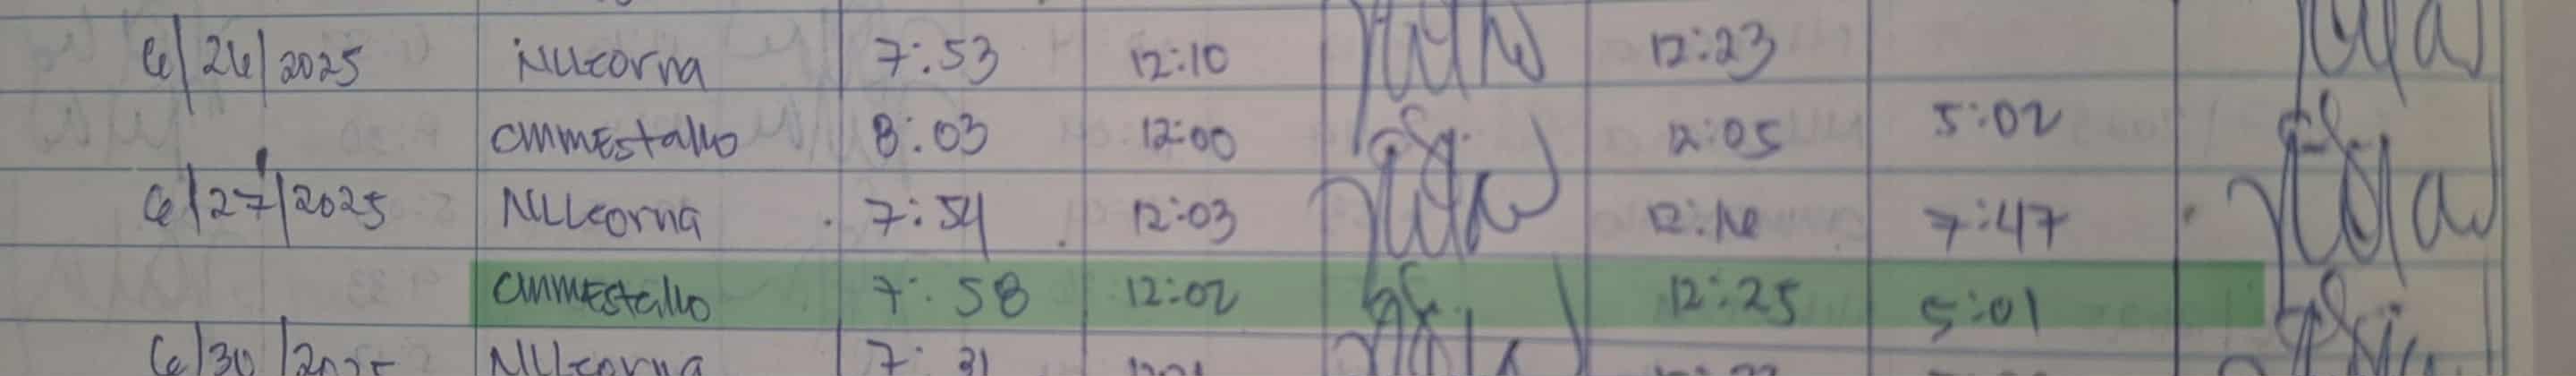 6/26/2025 NLLcorna 7:53 12:10 12:23
CMMEstallo 8:03 12:00 12:05 5:02
6/27/2025 NLLcorna 7:54 12:03 12:16 7:47
CMMEstallo 7:58 12:02 12:25 5:01
6/30/2025 NLLcorna 7:31